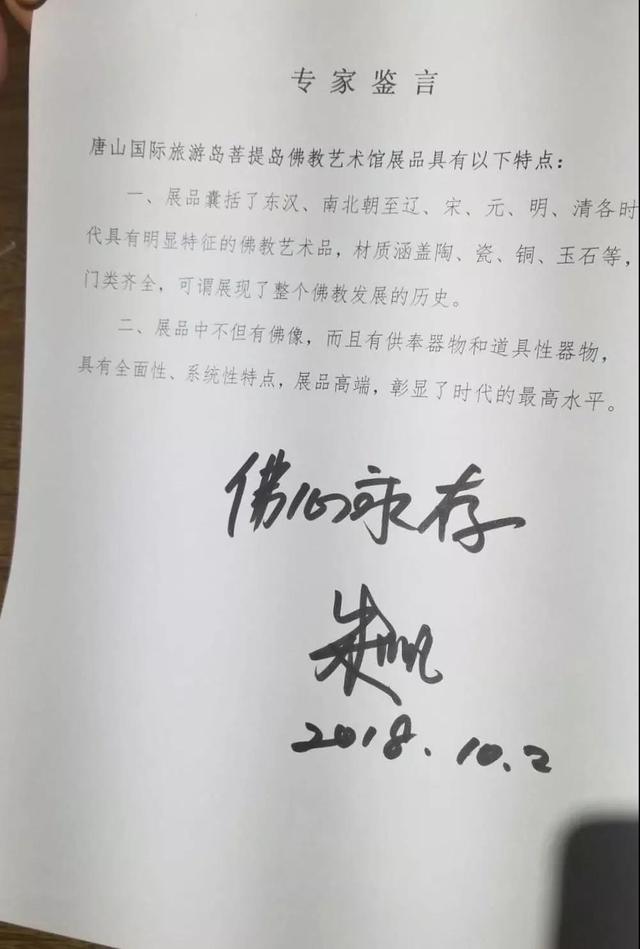 专家鉴言
唐山国际旅游岛菩提岛佛教艺术馆展品具有以下特点：
一、展品囊括了东汉、南北朝至辽、宋、元、明、清各时
代具有明显特征的佛教艺术品，材质涵盖陶、瓷、铜、玉石等，
门类齐全，可谓展现了整个佛教发展的历史。
二、展品中不但有佛像，而且有供奉器物和道具性器物，
具有全面性、系统性特点，展品高端，彰显了时代的最高水平。
佛心永存
2018.10.2